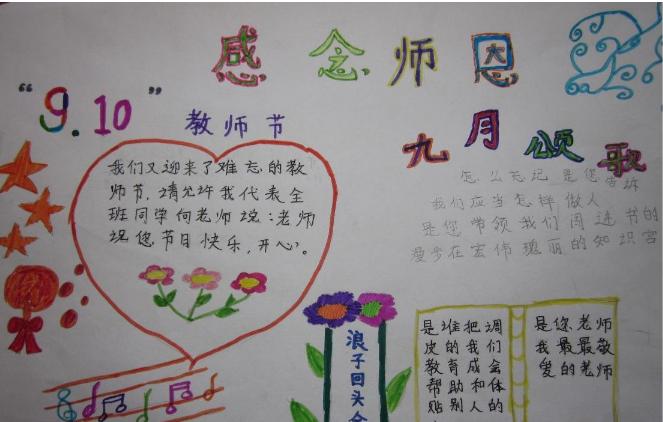 感念师恩
“9.10”
教师节
我们又迎来了难忘的教
师节，请允许我代表全
班同学向老师说：老师
祝您节日快乐，开心。
九月颂歌
怎么忘记是您告诉
我们应当怎样做人
是您带领我们周进书的
漫步在宏伟瑰丽的知识宫
浪子回头金
是谁把调
皮的我们
教育成会
帮助和体
贴别人的
是您老师
我最最敬
爱的老师